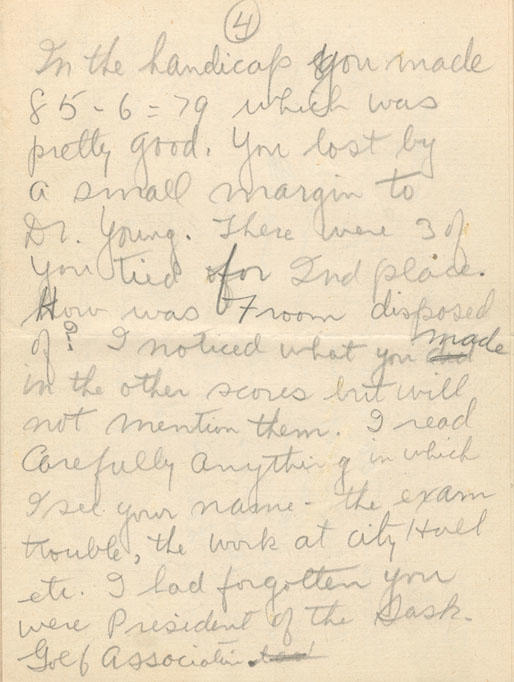 4
In the handicap you made
85-6=79 which was
pretty good. You lost by
a small margin to
Dr. Young. There were 3 of
you tied for 2nd place.
How was 7 room disposed
of? I noticed what you made
in the other scores but will
not mention them. I read
Carefully anything in which
I see your name - the exam
trouble, the work at City Hall
etc. I had forgotten you
were President of the Sask.
Golf Association.